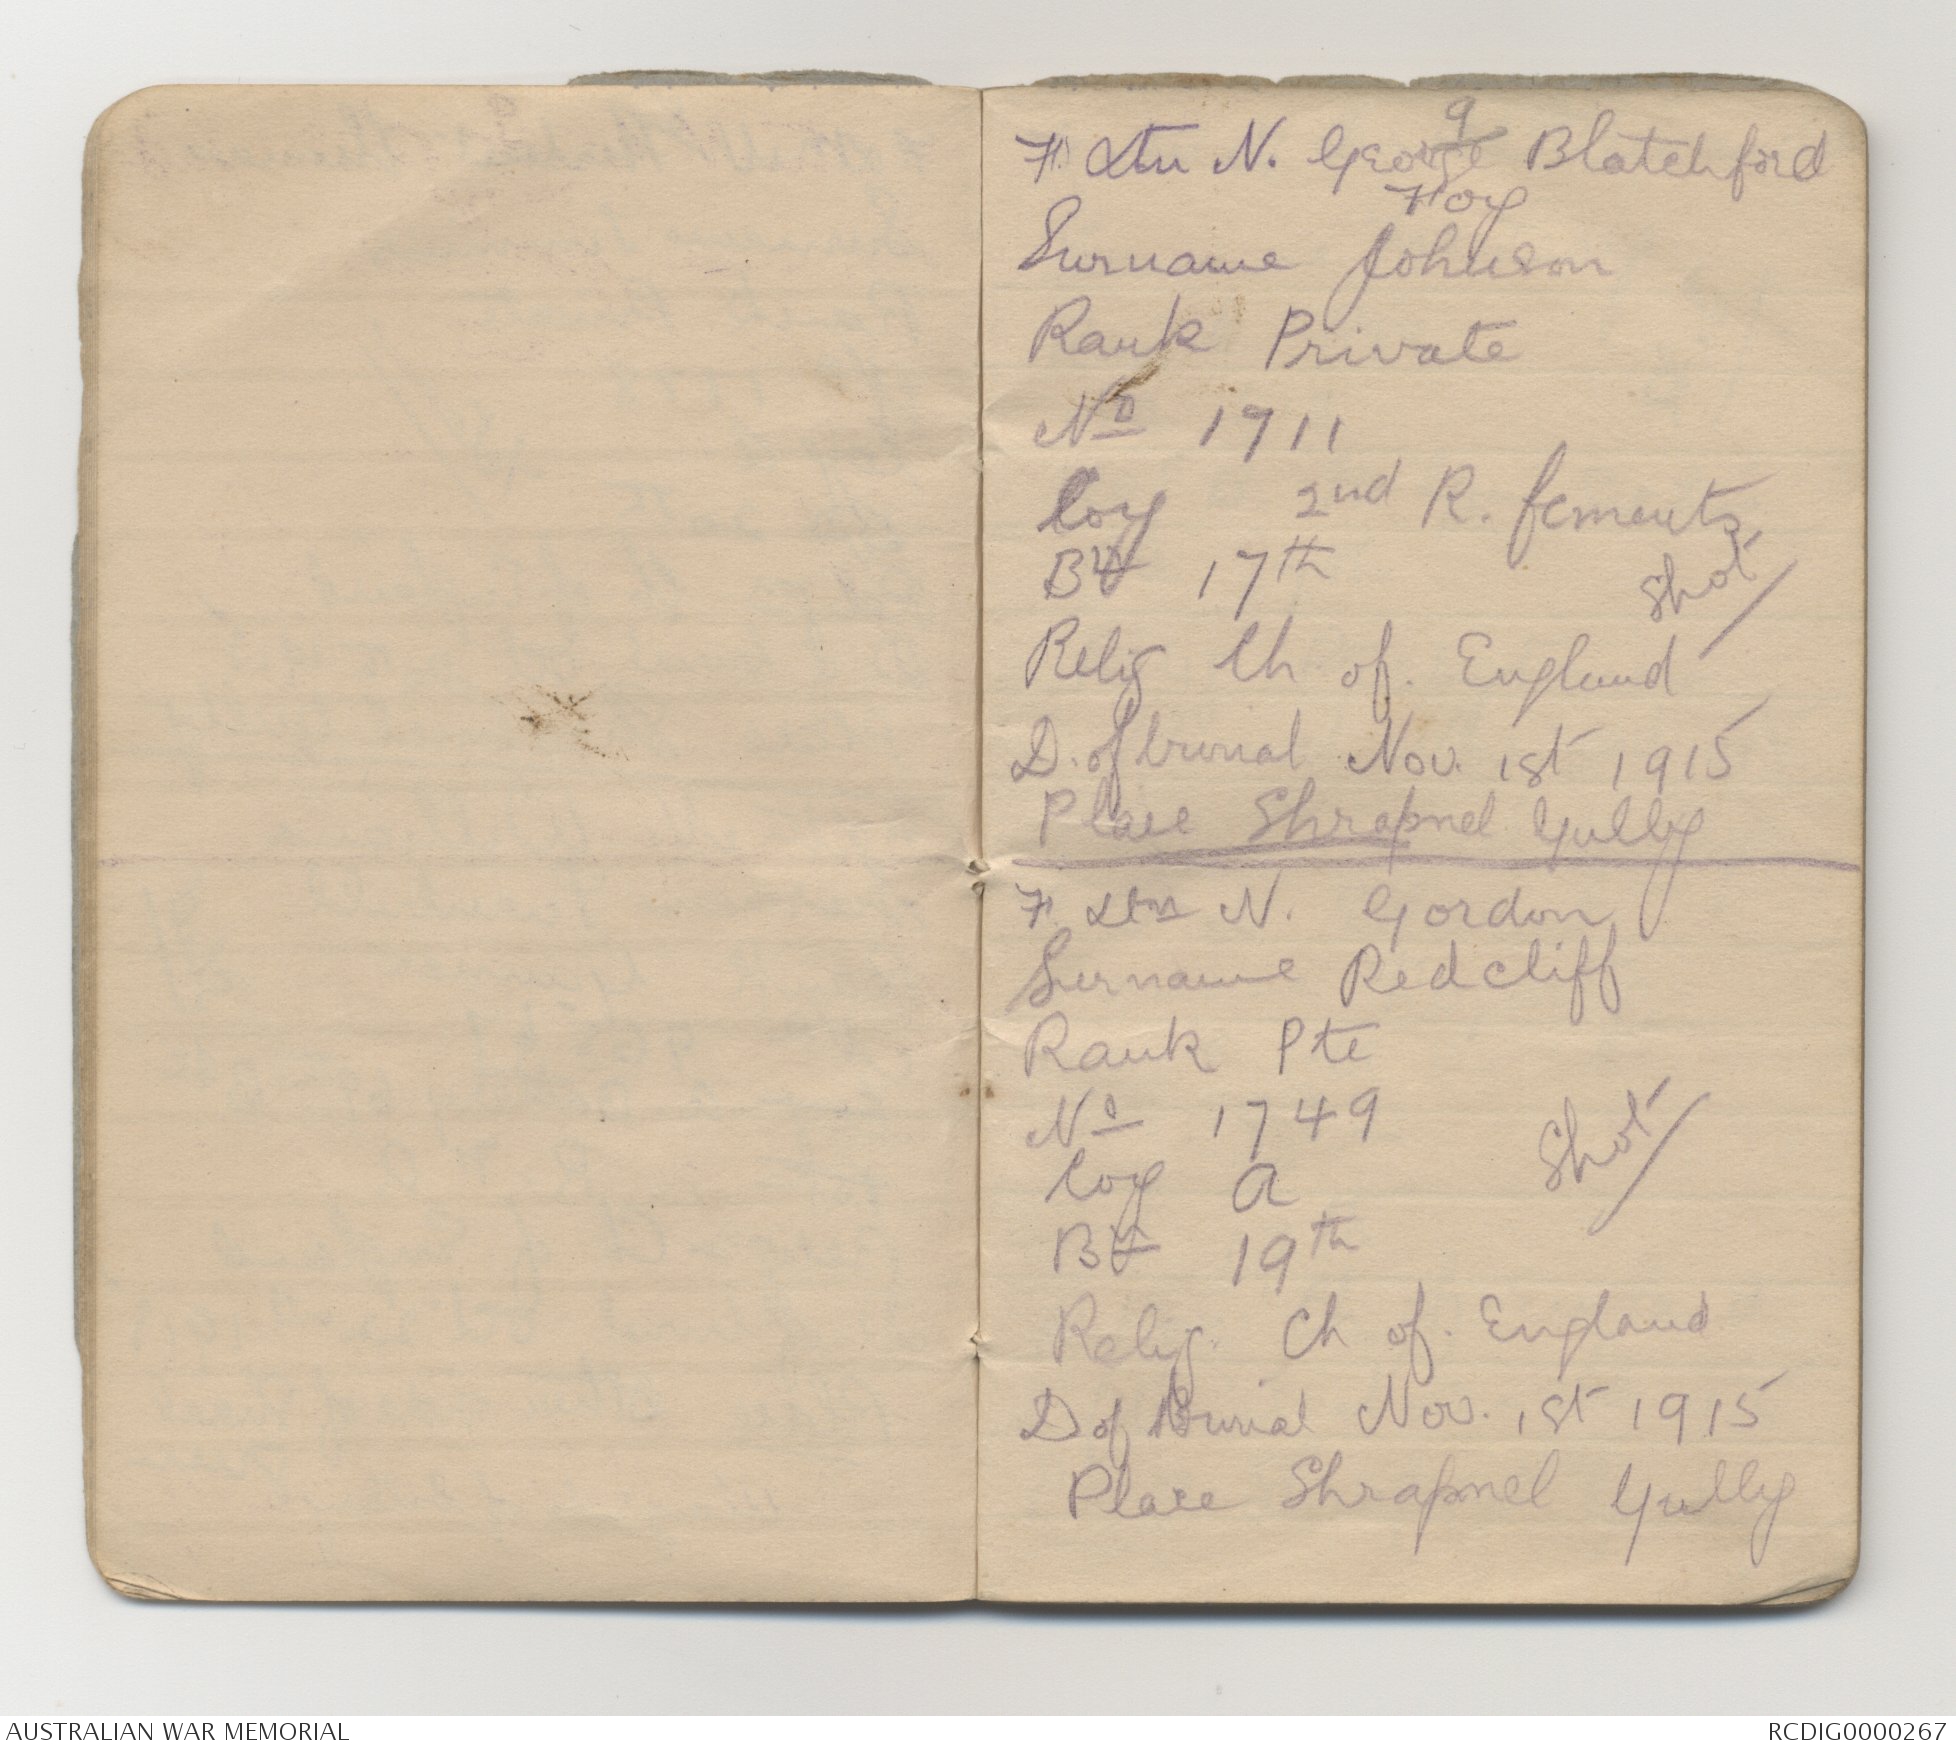 9
F. Xtn N. George Blatchford
Foy
Surname Johnson
Rank Private
No 1711
Coy 2nd R. fements
Bn 17th
Shot/
Relig Ch of. England
D. of burial Nov. 1st 1915
Place Shrapnel Gully
F. Xtn N. Gordon
Surname Redcliff
Rank Pte
No 1749
Shot/
Coy A
Bn 19th
Relig. Ch of. England
D of Burial Nov. 1st 1915
Place Shrapnel Gully
AUSTRALIAN WAR MEMORIAL
RCDIG0000267